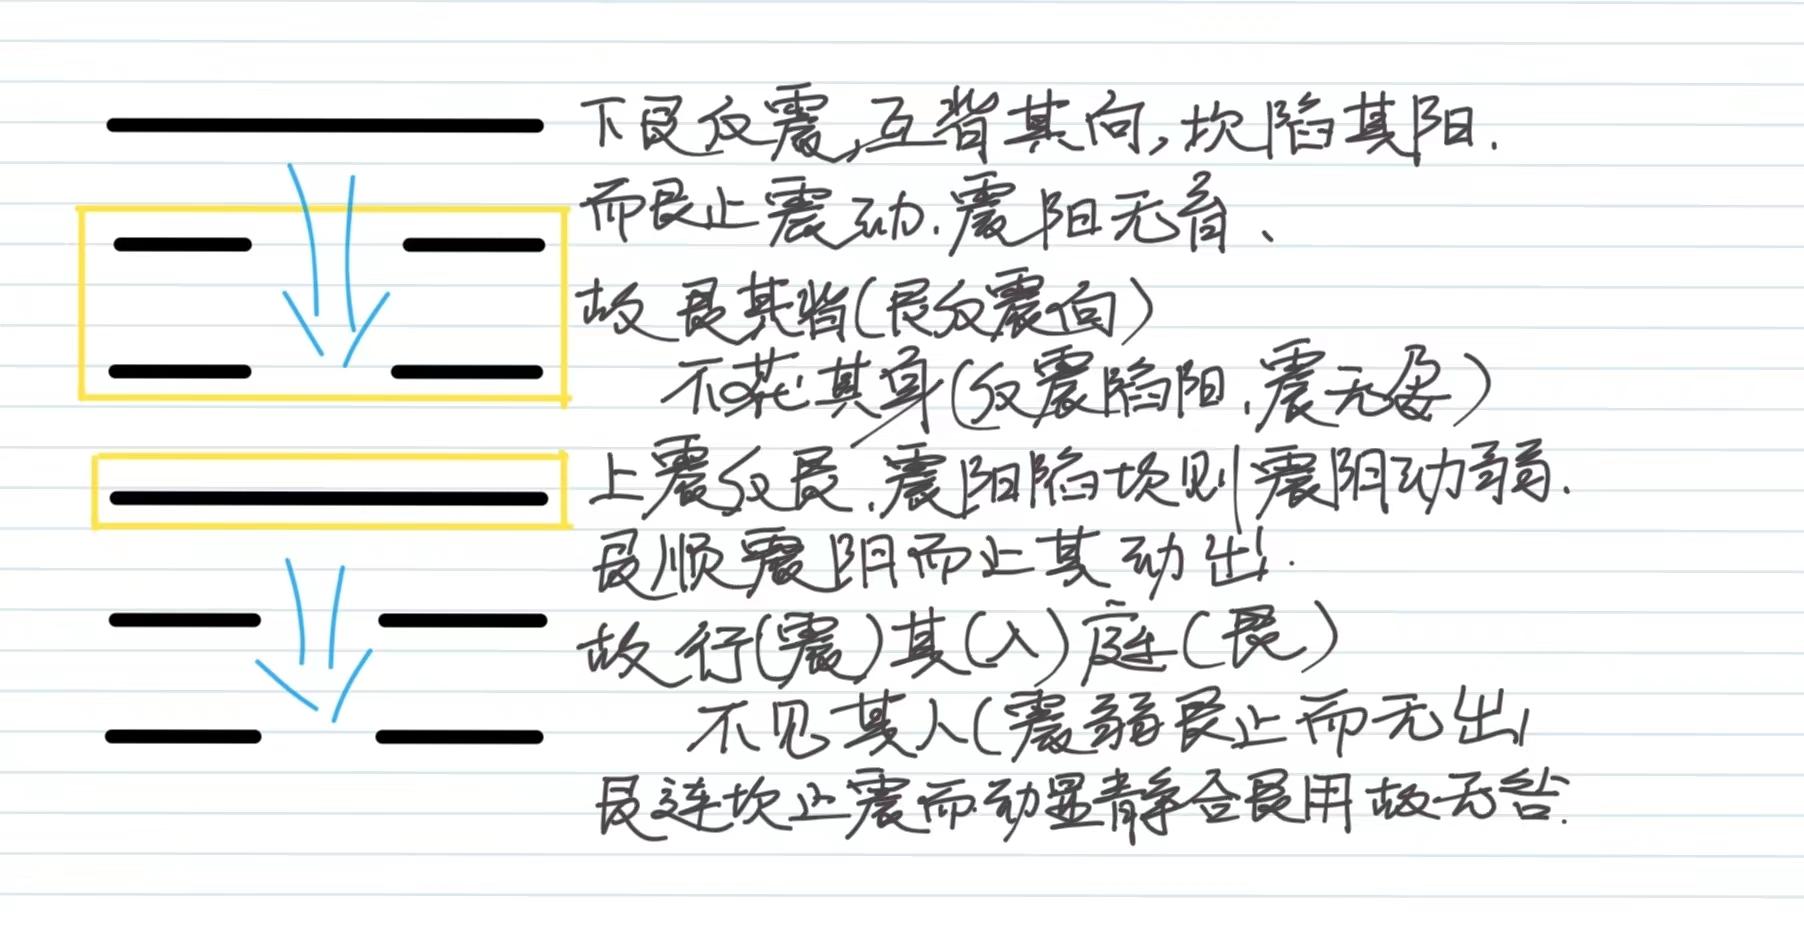 下艮反震,互背其向,坎陷其阳.
而艮止震动.震阳无育、
故艮其背(艮反震向)
不获其身(反震陷阳,震无孕)
上震反艮,震阳陷坎则震阳动弱.
艮顺震阴而止其动出.
故行(震)其(入)庭(艮)
不见其人(震弱艮止而无出
艮连坎止震而动显静合艮用故无咎.